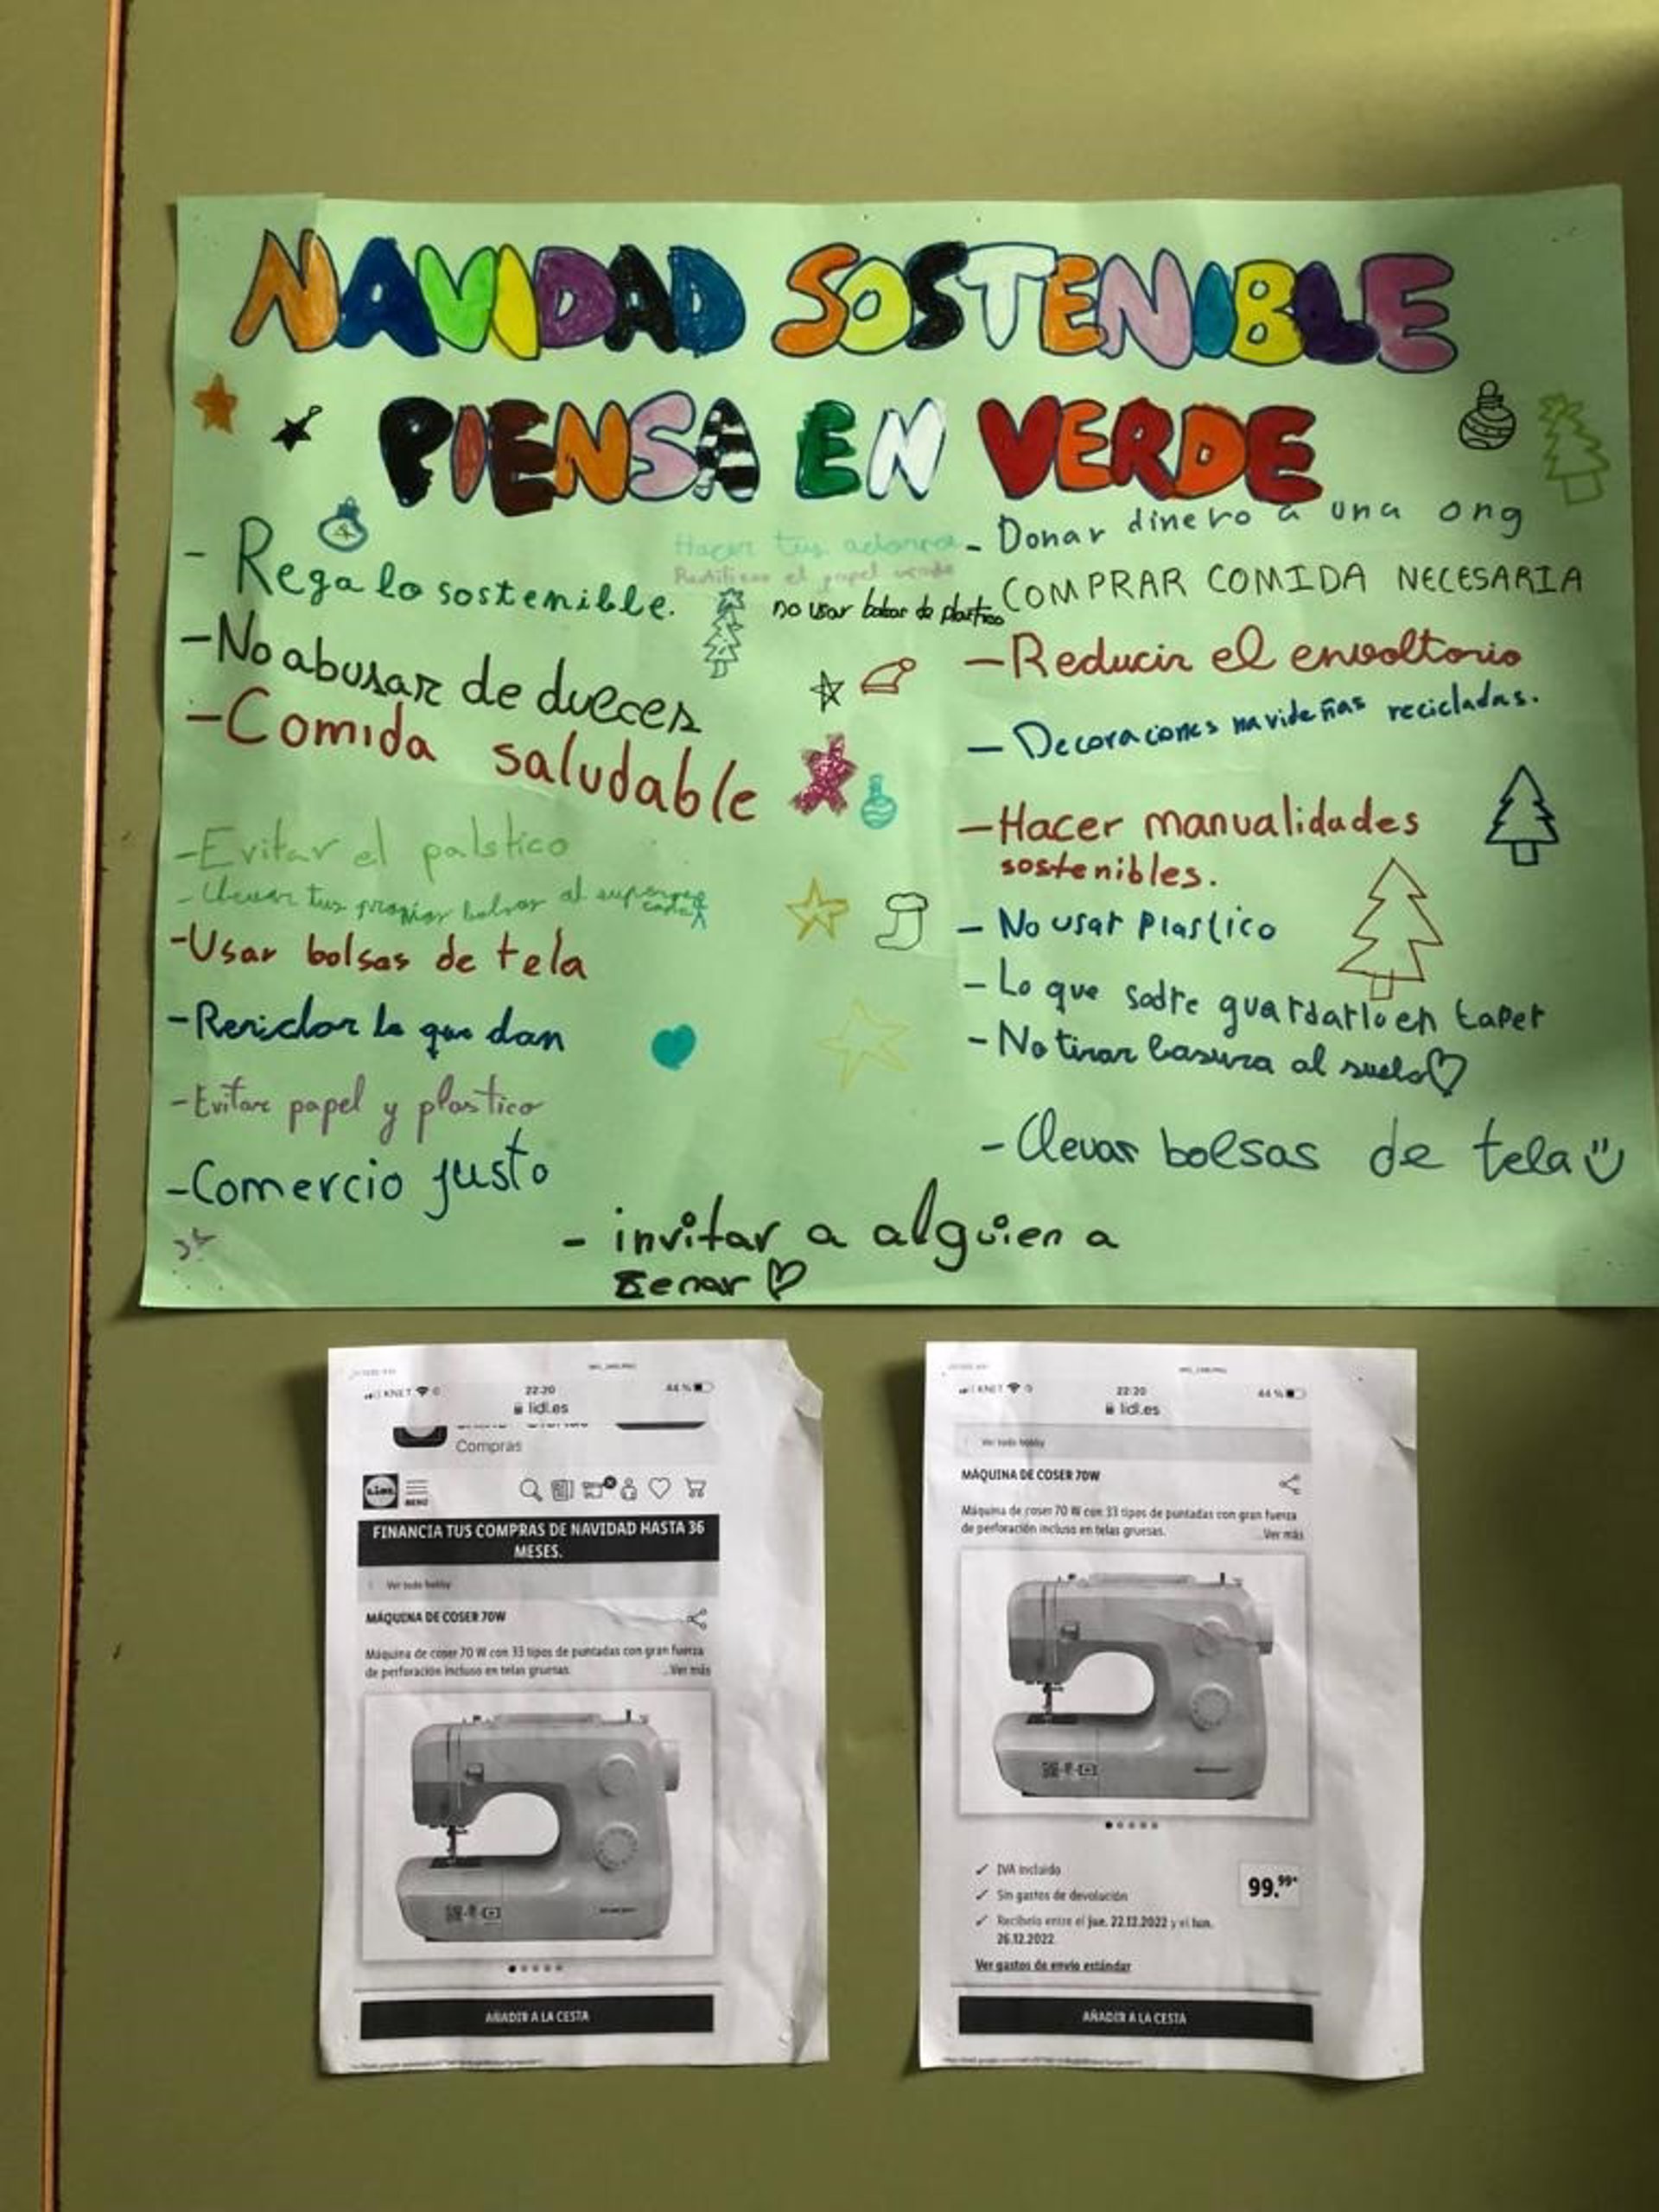 NAVIDAD SOSTENIBLE
PIENSA EN VERDE
- Regalo sostenible.
- No abusar de dulces
- Comida saludable
- Evitar el palstico
- Llevar tus propias bolsas al
- Usar bolsas de tela
- Reciclar lo que dan
- Evitar papel y plastico
- Comercio justo
Hacer tus adornos
el papel
no usar bolsas de plastico
- Donar dinero a una ong
COMPRAR COMIDA NECESARIA
- Reducir el envoltorio
- Decoraciones navideñas recicladas.
- Hacer manualidades
sostenibles.
- No usar Plastico
- Lo que sobre guardarlo en taper
- No tirar basura al suelo
- Llevar bolsas de tela
- invitar a alguien a
cenar
KNET
22:20
44 %
lidl.es
Compras
LIDL
MENÚ
FINANCIA TUS COMPRAS DE NAVIDAD HASTA 36
MESES.
Ver todo hobby
MÁQUINA DE COSER 70W
Máquina de coser 70 W con 33 tipos de puntadas con gran fuerza
de perforación incluso en telas gruesas.
...Ver más
AÑADIR A LA CESTA
KNET
22:20
44 %
lidl.es
Ver todo hobby
MÁQUINA DE COSER 70W
Máquina de coser 70 W con 33 tipos de puntadas con gran fuerza
de perforación incluso en telas gruesas.
...Ver más
✓ IVA incluido
✓ Sin gastos de devolución
✓ Recíbelo entre el jue. 22.12.2022 y el lun.
26.12.2022
99.99*
Ver gastos de envío estándar
AÑADIR A LA CESTA